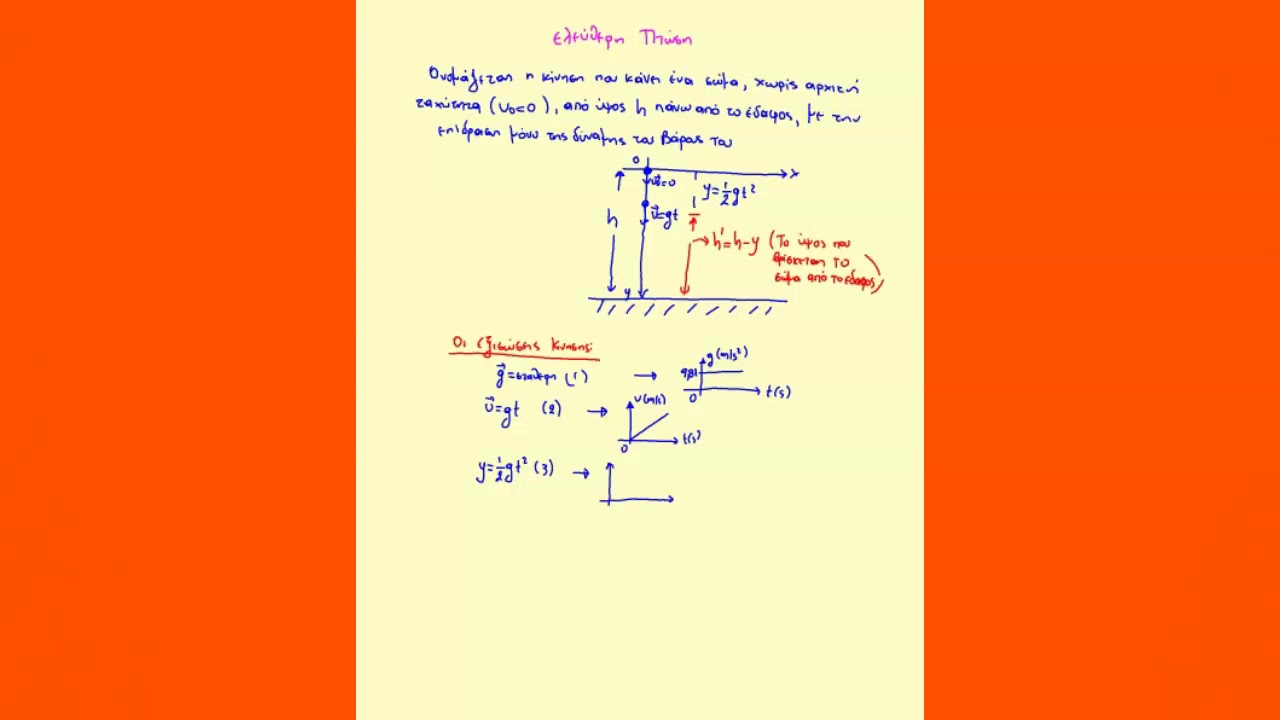 ελεύθερη Πτώση
Ονομάζεται η κίνηση που κάνει ένα σώμα, χωρίς αρχική
ταχύτητα (υ₀=0), από ύψος h πάνω από το έδαφος, με την
επίδραση μόνο της δύναμης του βάρους του
0
x
υ⃗₀=0
y=½gt²
h
υ⃗=gt
h'=h-y (Το ύψος που
βρίσκεται το
σώμα από το έδαφος)
y
Οι εξισώσεις κίνησης:
g⃗=σταθερη (1)
g(m/s²)
9,81
0
t(s)
υ⃗=gt (2)
υ(m/s)
t(s)
0
y=½gt² (3)